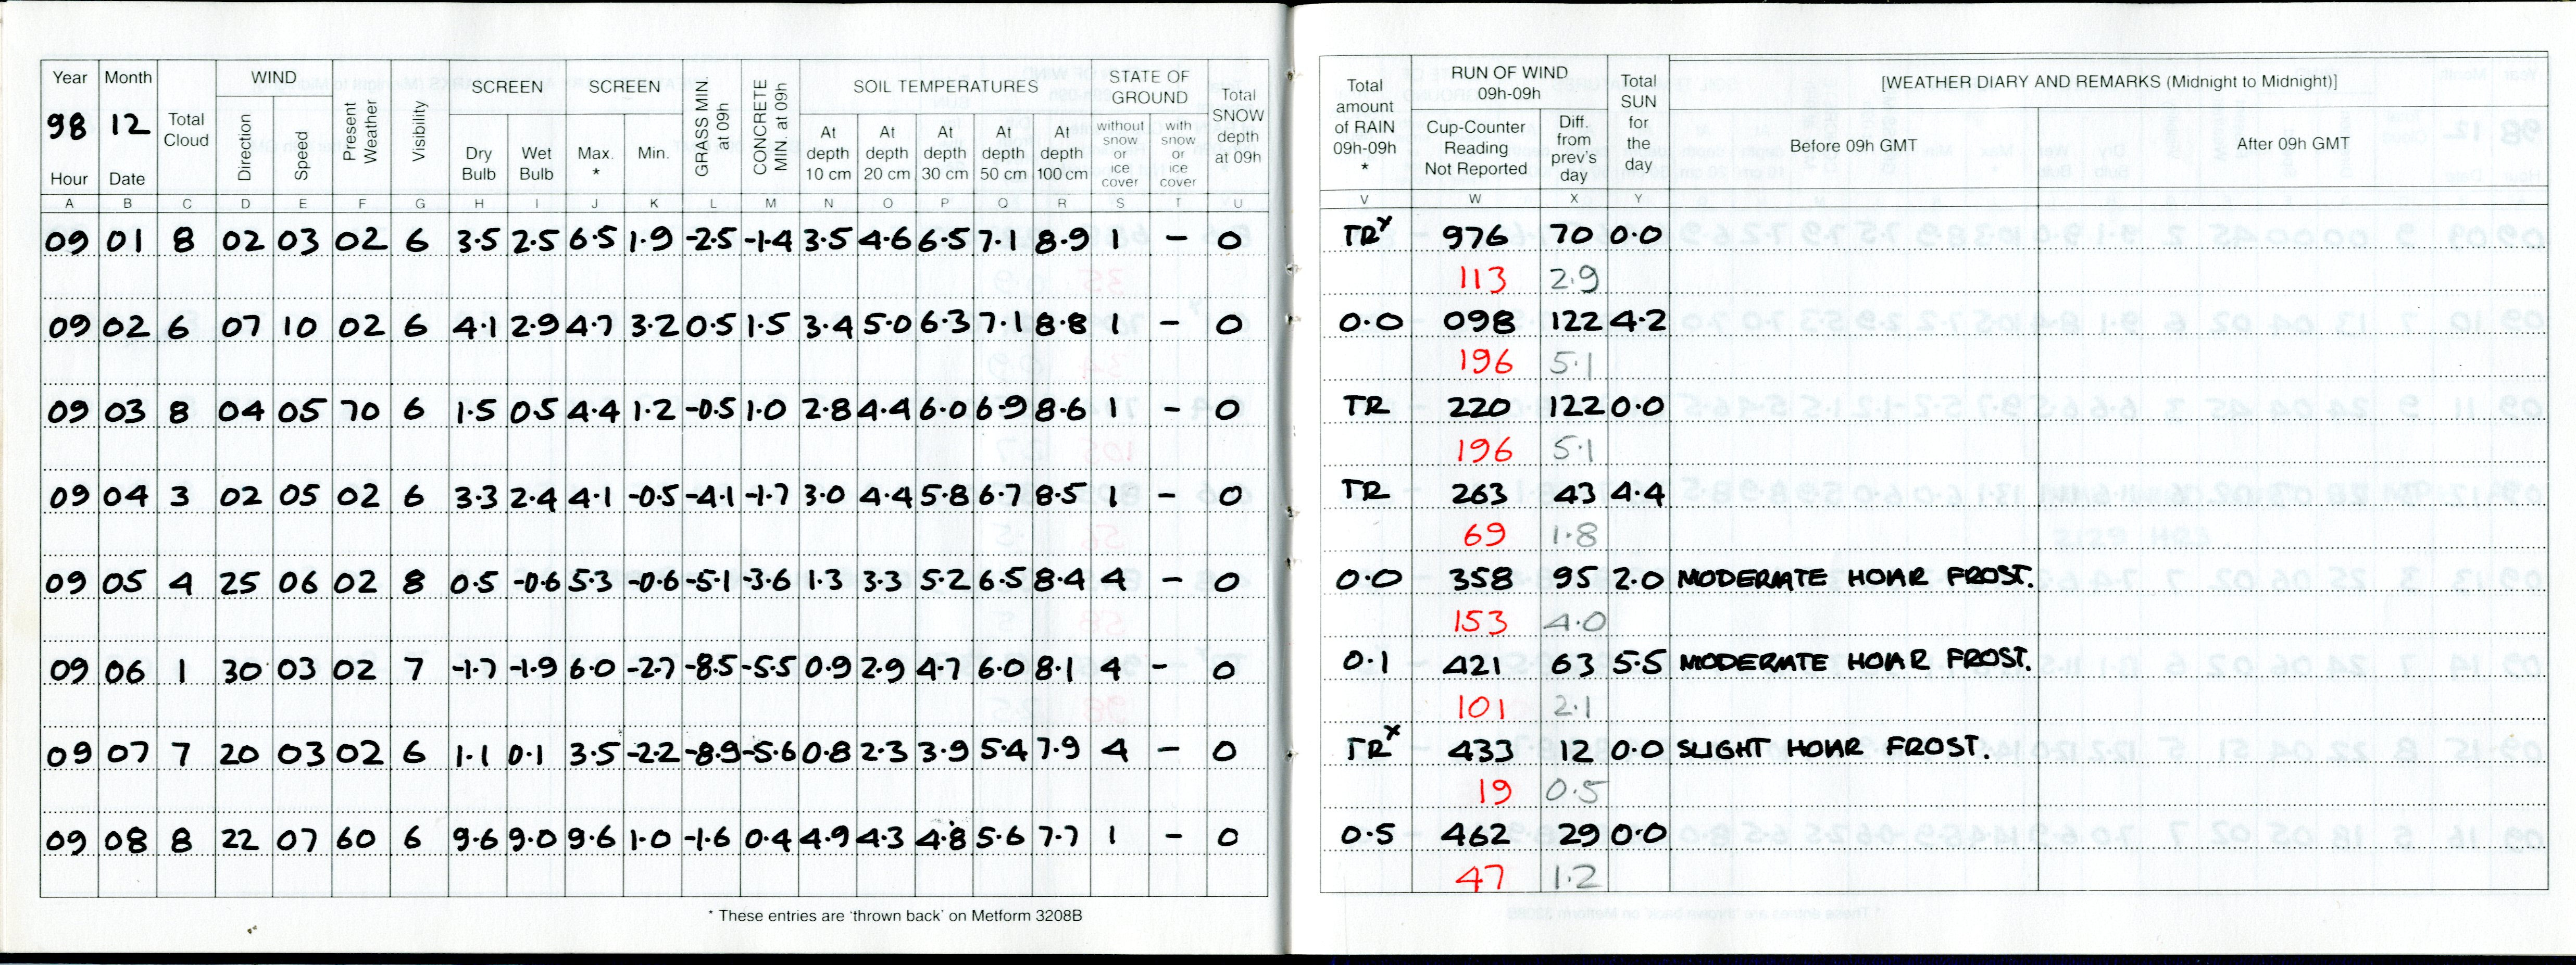 Year Month WIND SCREEN SCREEN SOIL TEMPERATURES STATE OF GROUND
98 12 Total Cloud Direction Speed Present Weather Visibility Dry Bulb Wet Bulb Max. * Min. GRASS MIN. at 09h CONCRETE MIN. at 09h At depth 10 cm At depth 20 cm At depth 30 cm At depth 50 cm At depth 100 cm without snow or ice cover with snow or ice cover Total SNOW depth at 09h
Hour Date
A B C D E F G H I J K L M N O P Q R S T U
09 01 8 02 03 02 6 3.5 2.5 6.5 1.9 -2.5 -1.4 3.5 4.6 6.5 7.1 8.9 1 - 0
09 02 6 07 10 02 6 4.1 2.9 4.7 3.2 0.5 1.5 3.4 5.0 6.3 7.1 8.8 1 - 0
09 03 8 04 05 70 6 1.5 0.5 4.4 1.2 -0.5 1.0 2.8 4.4 6.0 6.9 8.6 1 - 0
09 04 3 02 05 02 6 3.3 2.4 4.1 -0.5 -4.1 -1.7 3.0 4.4 5.8 6.7 8.5 1 - 0
09 05 4 25 06 02 8 0.5 -0.6 5.3 -0.6 -5.1 -3.6 1.3 3.3 5.2 6.5 8.4 4 - 0
09 06 1 30 03 02 7 -1.7 -1.9 6.0 -2.7 -8.5 -5.5 0.9 2.9 4.7 6.0 8.1 4 - 0
09 07 7 20 03 02 6 1.1 0.1 3.5 -2.2 -8.9 -5.6 0.8 2.3 3.9 5.4 7.9 4 - 0
09 08 8 22 07 60 6 9.6 9.0 9.6 1.0 -1.6 0.4 4.9 4.3 4.8 5.6 7.7 1 - 0
* These entries are 'thrown back' on Metform 3208B
Total amount of RAIN 09h-09h * RUN OF WIND 09h-09h Total SUN for the day [WEATHER DIARY AND REMARKS (Midnight to Midnight)]
Cup-Counter Reading Not Reported Diff. from prev's day Before 09h GMT After 09h GMT
V W X Y
TRx 976 70 0.0
113 2.9
0.0 098 122 4.2
196 5.1
TR 220 122 0.0
196 5.1
TR 263 43 4.4
69 1.8
0.0 358 95 2.0 MODERATE HOAR FROST.
153 4.0
0.1 421 63 5.5 MODERATE HOAR FROST.
101 2.1
TRx 433 12 0.0 SLIGHT HOAR FROST.
19 0.5
0.5 462 29 0.0
47 1.2